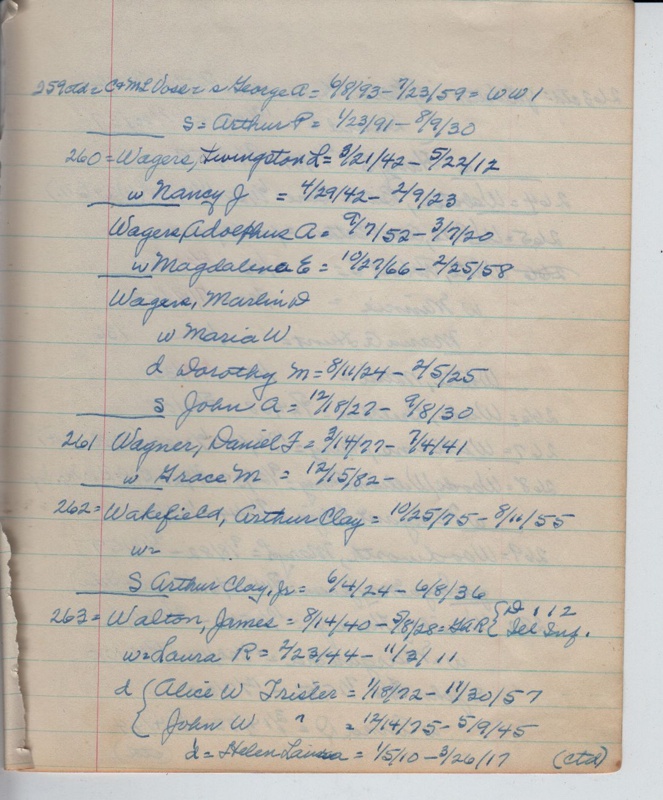 259 ctd = C & ML Vose = s George A = 6/8/93 - 7/23/59 = WW 1
s = Arthur P = 1/23/91 - 8/9/30
260 = Wagers, Livingston L = 3/21/42 - 5/22/12
w Nancy J = 4/29/42 - 2/9/23
Wagers, Adolphus A = 9/7/52 - 3/7/20
w Magdalina E = 10/27/66 - 2/25/58
Wagers, Marlin D
w Maria W
d Dorothy M = 8/11/24 - 2/5/25
s John A = 12/18/27 - 9/8/30
261 Wagner, Daniel F = 3/14/77 - 7/4/41
w Grace M = 12/15/82 -
262 = Wakefield, Arthur Clay = 10/25/75 - 8/11/55
w =
S Arthur Clay, Jr = 6/4/24 - 6/8/36
263 = Walton, James = 8/14/40 - 5/8/28 = GAR { D 1 12 Del Inf.
w = Laura R = 2/23/44 - 11/3/11
d { Alice W Trisler = 1/18/72 - 11/30/57
{ John W " = 12/14/75 - 5/9/45
d = Helen Laura = 1/5/10 - 3/26/17 (ctd)